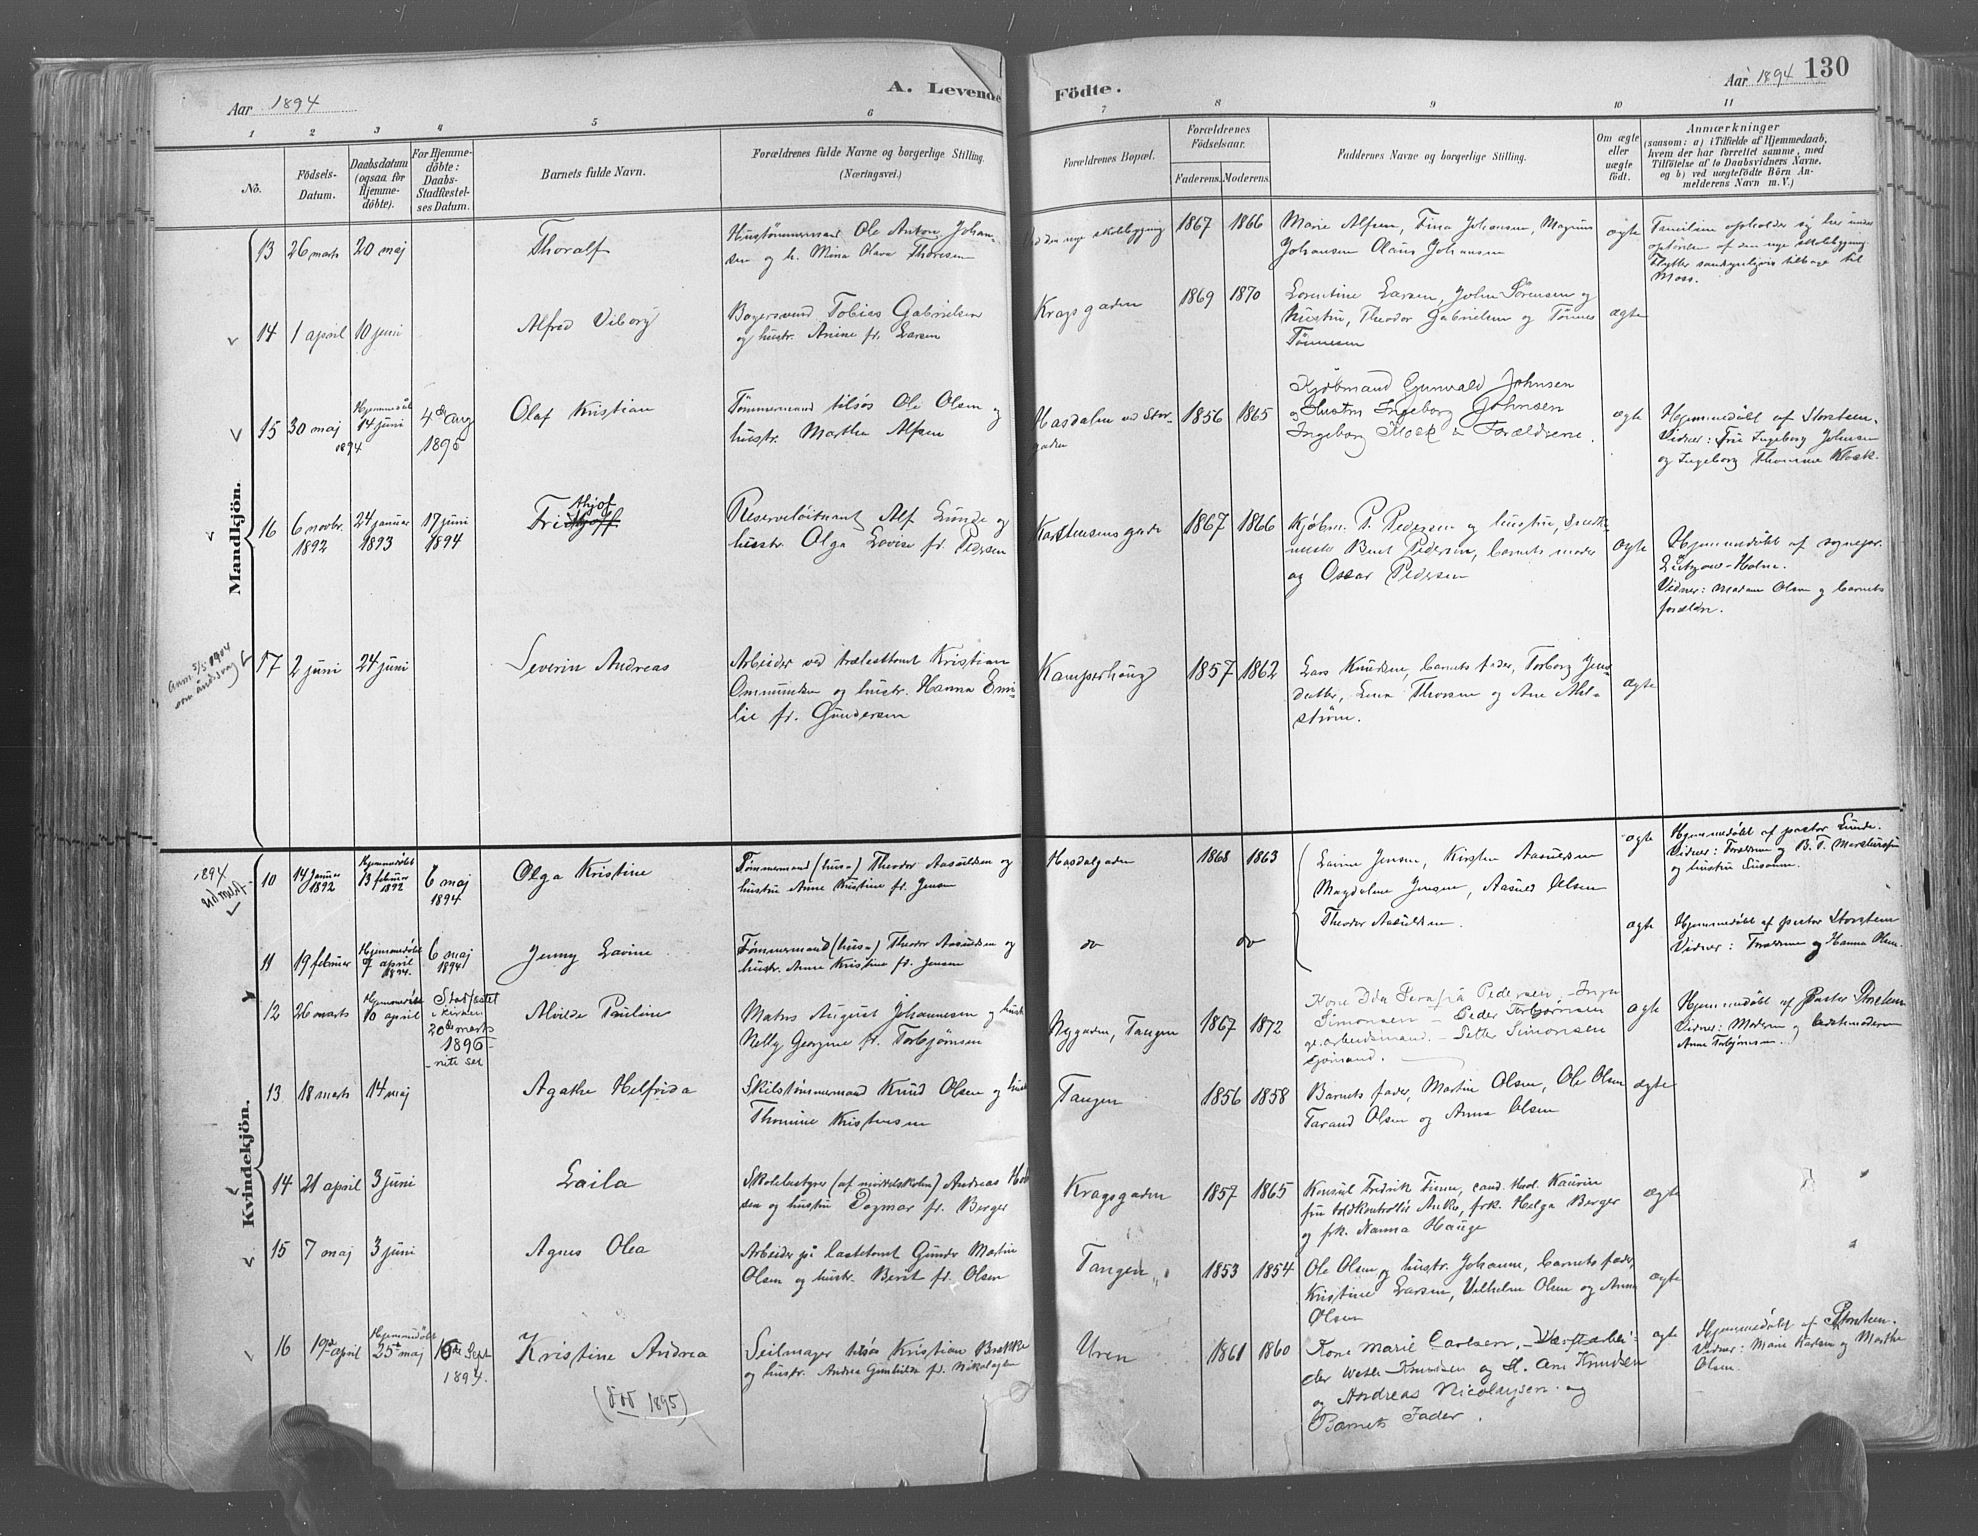 Aar 1894
A. Levende
Födte.
Aar 1894 130
1 2 3 4 5 6 7 8 9 10 11
No.
Födsels-
Datum.
Daabsdatum
(ogsaa for
Hjemme-
döbte).
For Hjemme-
döbte:
Daabs-
Stadfæstel-
ses Datum.
Barnets fulde Navn.
Forældrenes fulde Navne og borgerlige Stilling.
(Næringsvei.)
Forældrenes Bopæl.
Forældrenes
Födselsaar.
Faderens. Moderens.
Faddernes Navne og borgerlige Stilling.
Om ægte
eller
uægte
födt.
Anmærkninger
(saasom: a) i Tilfælde af Hjemmedaab,
hvem der har forrettet samme, med
Tilföielse af to Daabsvidners Navne,
og b) ved uægtefödte Börn An-
melderens Navn m. V.)
Mandkjön.
13 26 marts 20 maj
Thoralf
Hustømmermand Ole Anton Johan-
sen og h. Mina Olava Thoresen
Ved den nye skolebygning
1867 1866
Marie Alfsen, Tina Johansen, Magnus
Johansen Olaus Johansen
ægte
Familien opholder sig her under
opførelsen af den nye skolebygning.
Flytter sandsynligvis tilbage til
Moss.
14 1 april 10 juni
Alfred Viborg
Bagersvend Tobias Gabrielsen
og hustr. Anine f. Larsen
Kragsgaden
1869 1870
Lorentine Larsen, John Sørensen og
hustru, Theodor Gabrielsen og Tønnes
Tønnesen
ægte
15 30 maj
1894
Hjemmedøbt
14 juni
4de aug
1895
Olaf Kristian
Tømmermand tilsøs Ole Olsen og
hustr. Marthe Alfsen
Hasdalen ved Stor-
gaden
1856 1865
Kjøbmand Gunvald Johnsen
og Hustru Ingeborg Johnsen
Ingeborg Klock & Forældrene.
ægte
Hjemmedøbt af Storsteen.
Vidner: Fru Ingeborg Johnsen
og Ingeborg Thomine Klock.
16 6 novbr.
1892
24 januar
1893
17 juni
1894
thjof
Fridthjoff
Reserveløitnant Alf Lunde og
hustr. Olga Lovise f. Pedersen
Karstensensgade
1867 1866
Kjøbm. P. Pedersen og hustru,
Bert Pedersen, barnets moder
og Oscar Pedersen
ægte
Hjemmedøbt af sognepr.
Lützow-Holm.
Vidner: Madam Olsen og barnets
forældre.
Anm. 5/5 1904
som åndssvag
17 2 juni 24 juni
Severin Andreas
Arbeider ved trælasttomt Kristian
Ommundsen og hustr. Hanna Emi-
lie f. Gundersen
Kamperhaug
1857 1862
Lars Knudsen, barnets fader, Torborg Jens-
datter, Lina Thorsen og Ane Ahl-
strøm.
ægte
Kvindekjön.
1894
Udmeldt
10 14 januar
1892
Hjemmedøbt
13 februar
1892
6 maj
1894
Olga Kristine
Tømmermand (hus-) Theodor Aasuldsen og
hustru Anne Kristine f. Jensen
Hasdalgaden
1868 1863
Lavine Jensen, Kirsten Aasuldsen
Magdalene Jensen, Aasuld Olsen
Theodor Aasuldsen.
ægte
Hjemmedøbt af pastor Lunde.
Vidner: Forældrene og B. T.
og hustru Susanne.
11 19 februar
Hjemmedøbt
9 april
1894.
6 maj
1894
Jenny Lavine
Tømmermand (hus-) Theodor Aasuldsen og
hustr. Anne Kristine f. Jensen
do do
ægte
Hjemmedøbt af pastor Storsteen
Vidner: Forældrene og Hanna Olsen.
12 26 marts
Hjemmedøbt
10 april
Stadfæstet
i kirken
20de marts
1896
Alvilde Pauline
Matros August Johannesen og hustr
Nelly Georgine f. Torbjørnsen
Nygaden, Tangen
1867 1872
Kone Ida Serafia Pedersen, Inga
Simonsen – Peder Torbjørnsen
arbeidsmand. – Petter Simonsen
sjømand.
ægte
Hjemmedøbt af Pastor Storsteen
Vidner: Moderen og bedstemoderen
Anne Torbjørnsen.
13 18 marts 14 maj
Agathe Helfrida
Skibstømmermand Knud Olsen og hustr
Thomine Kristensen
Tangen
1856 1858
Barnets fader, Martin Olsen, Ole Olsen
Tarand Olsen og Anna Olsen
ægte
14 21 april 3 juni
Laila
Skolebestyrer (af middelskolen) Andreas
og hustru Dagmar f. Berger
Kragsgaden
1857 1865
Konsul Fredrik Finne, cand. med. Kaurin
fru toldkontrollør Anker, frk. Helga Berger
og frk. Nanna Hauge
ægte
15 7 maj 3 juni
Agnes Olea
Arbeider på lastetomt Gunder Martin
Olsen og hustr. Berit f. Olsen
Tangen
1853 1854
Ole Olsen og hustr. Johanne, barnets fader,
Kristine Larsen, Vilhelm Olsen og Anna
Olsen
ægte
16 19de april
Hjemmedøbt
25de maj
16de Sept
1894.
Kristine Andrea
(død 1895)
Seilmager tilsøs Kristian Brekke
og hustr. Andrea Gunhilde f. Nikolaysen
Uren
1861 1860
Kone Marie Carlsen, – Værftsarbei-
der Knudsen og H. Ane Knudsen
og Andreas Nicolaysen og
Barnets Fader.
ægte
Hjemmedøbt af Storsteen.
Vidner: Marie Karlsen og Marthe
Olsen.